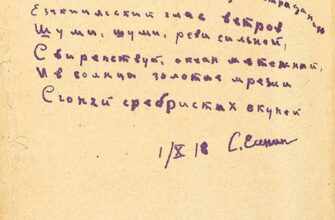 Езекиильский глас ветров
Шуми, шуми, реви сильней,
Свирепствуй, океан мятежный,
И в солнца золотые мрежи
Сгоняй сребристых окуней
1/X 18 С. Есенин